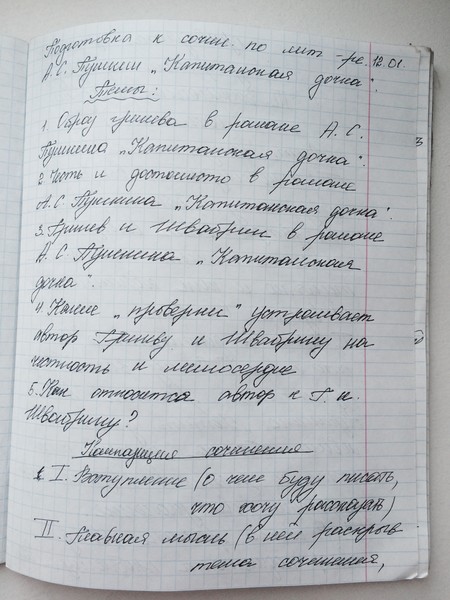 Подготовка к сочин. по лит-ре. 12.01
А.С. Пушкин „Капитанская дочка".
Темы:
1. Образ Гринева в романе А.С.
Пушкина „Капитанская дочка".
2. Честь и достоинство в романе
А.С. Пушкина „Капитанская дочка".
3. Гринев и Швабрин в романе
А.С Пушкина „Капитанская
дочка".
4. Какие „проверки" устраивает
автор Гриневу и Швабрину на
честность и милосердие
5. Как относится автор к Г. и
Швабрину?
Композиция сочинения
I. Вступление (о чем буду писать,
что хочу рассказать)
II. Главная мысль (в ней раскрыв
тема сочинения,